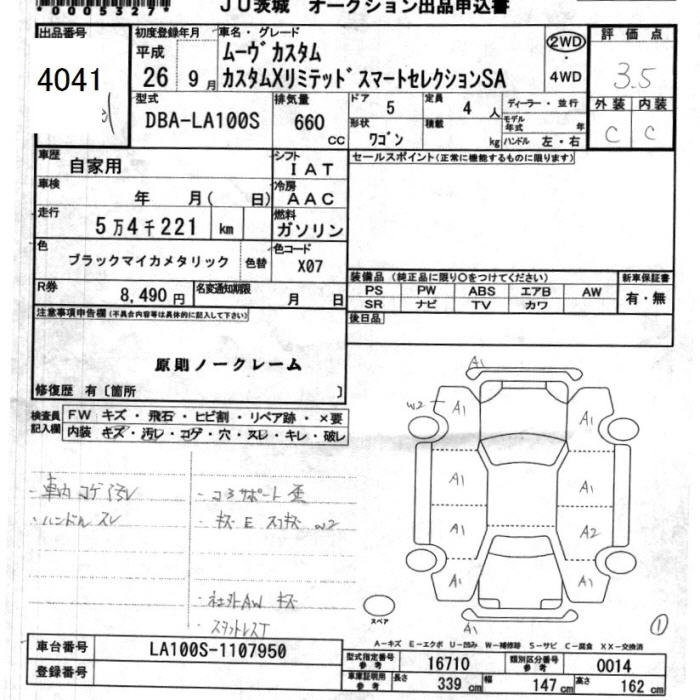 00053270
JU茨城 オークション出品申込書
出品番号
4041
初度登録年月
平成
26 9月
車名・グレード
ムーヴカスタム
カスタムXリミテッド゛スマートセレクションSA
2WD
4WD
評価点
3.5
外装 内装
C C
型式
DBA-LA100S
排気量
660
CC
ドア 5
定員 4 人
ディーラー・並行
モデル年式 年
形状 ワゴン
積載 kg
ハンドル 左・右
車歴 自家用
シフト IAT
セールスポイント(正常に機能するものに限ります)
車検 年 月( 日)
冷房 AAC
走行 5万4千221 km
燃料 ガソリン
色 ブラックマイカメタリック 色替
色コード X07
R券 8,490円
名変通知期限 月 日
装備品 (純正品に限り○をつけてください)
新車保証書
PS PW ABS エアB AW
SR ナビ TV カワ
有・無
後日品
注意事項申告欄(不具合内容等は具体的に記入して下さい)
原則ノークレーム
修復歴 有〔箇所 〕
検査員記入欄
FW キズ・飛石・ヒビ割・リペア跡・×要
内装 キズ・汚レ・コゲ・穴・スレ・キレ・破レ
車内 コゲ 汚レ
ハンドル スレ
コアサポート 歪
キズ E スリキズ W2
社外AW キズ
スタットレスT
A1
W2
A1 A1
A1 A1
A1 A2
A1 A1
A1
スペア
1
A-キズ E-エクボ U-凹み W-補修跡 S-サビ C-腐食 XX-交換済
車台番号 LA100S-1107950
登録番号
型式指定番号参考 16710
類別区分番号参考 0014
車庫証明用参考 長さ 339 cm 幅 147 cm 高さ 162 cm